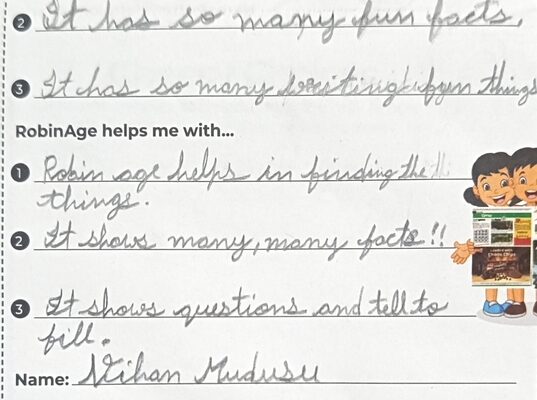 2 It has so many fun facts.
3 It has so many things
RobinAge helps me with...
1 Robin age helps in finding the
things.
2 It shows many, many facts!!
3 It shows questions and tell to
fill.
Name: Nihan Mudusu